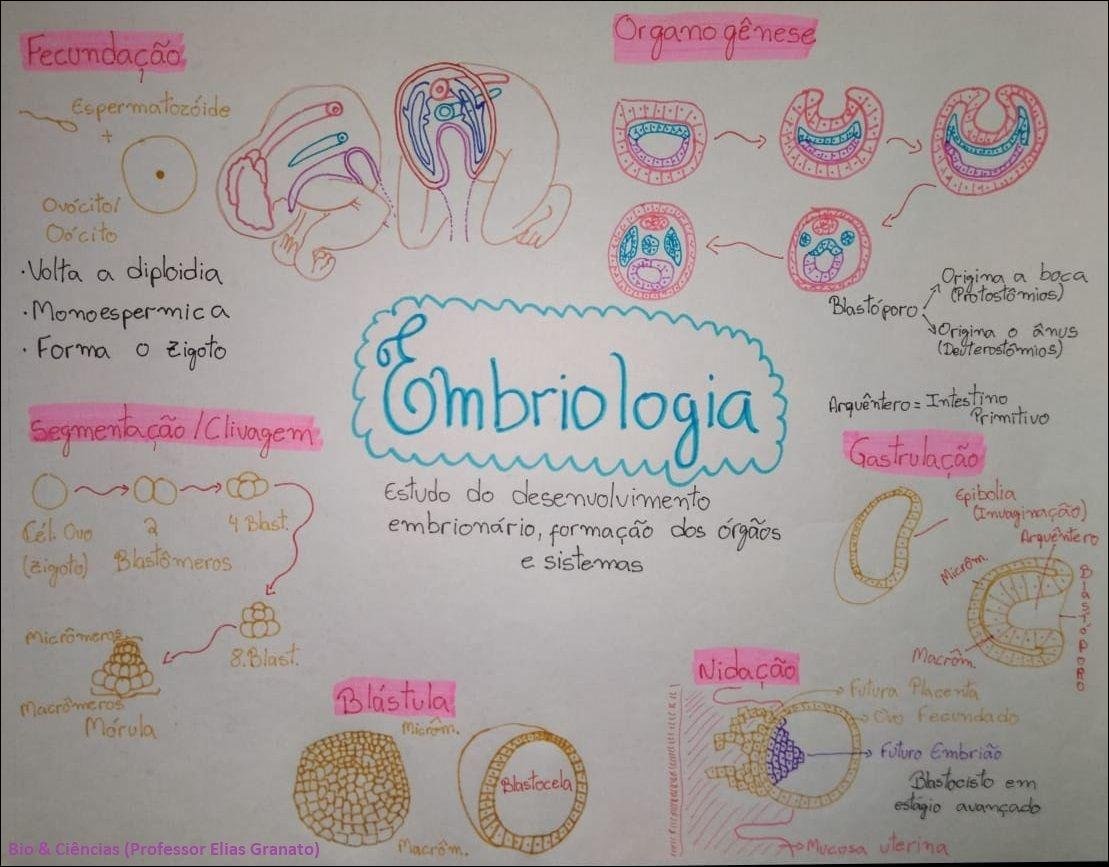 Fecundação
Espermatozóide
+
Ovócito/
Oócito
· Volta a diploidia
· Monoespermica
· Forma o zigoto
Organogênese
Blastóporo
Origina a boca
(Protostômios)
Origina o ânus
(Deuterostômios)
Arquêntero = Intestino
Primitivo
Embriologia
Estudo do desenvolvimento
embrionário, formação dos órgãos
e sistemas
Segmentação/Clivagem
Cél. Ovo
(zigoto)
2
Blastômeros
4 Blast.
8. Blast.
Micrômeros
Macrômeros
Mórula
Gastrulação
Epibolia
(Invaginação)
Arquêntero
Micrôm.
Macrôm.
BLASTÓPORO
Blástula
Micrôm.
Blastocela
Macrôm.
Nidação
Futura Placenta
Ovo Fecundado
Futuro Embrião
Blastocisto em
estágio avançado
Mucosa uterina
Bio & Ciências (Professor Elias Granato)